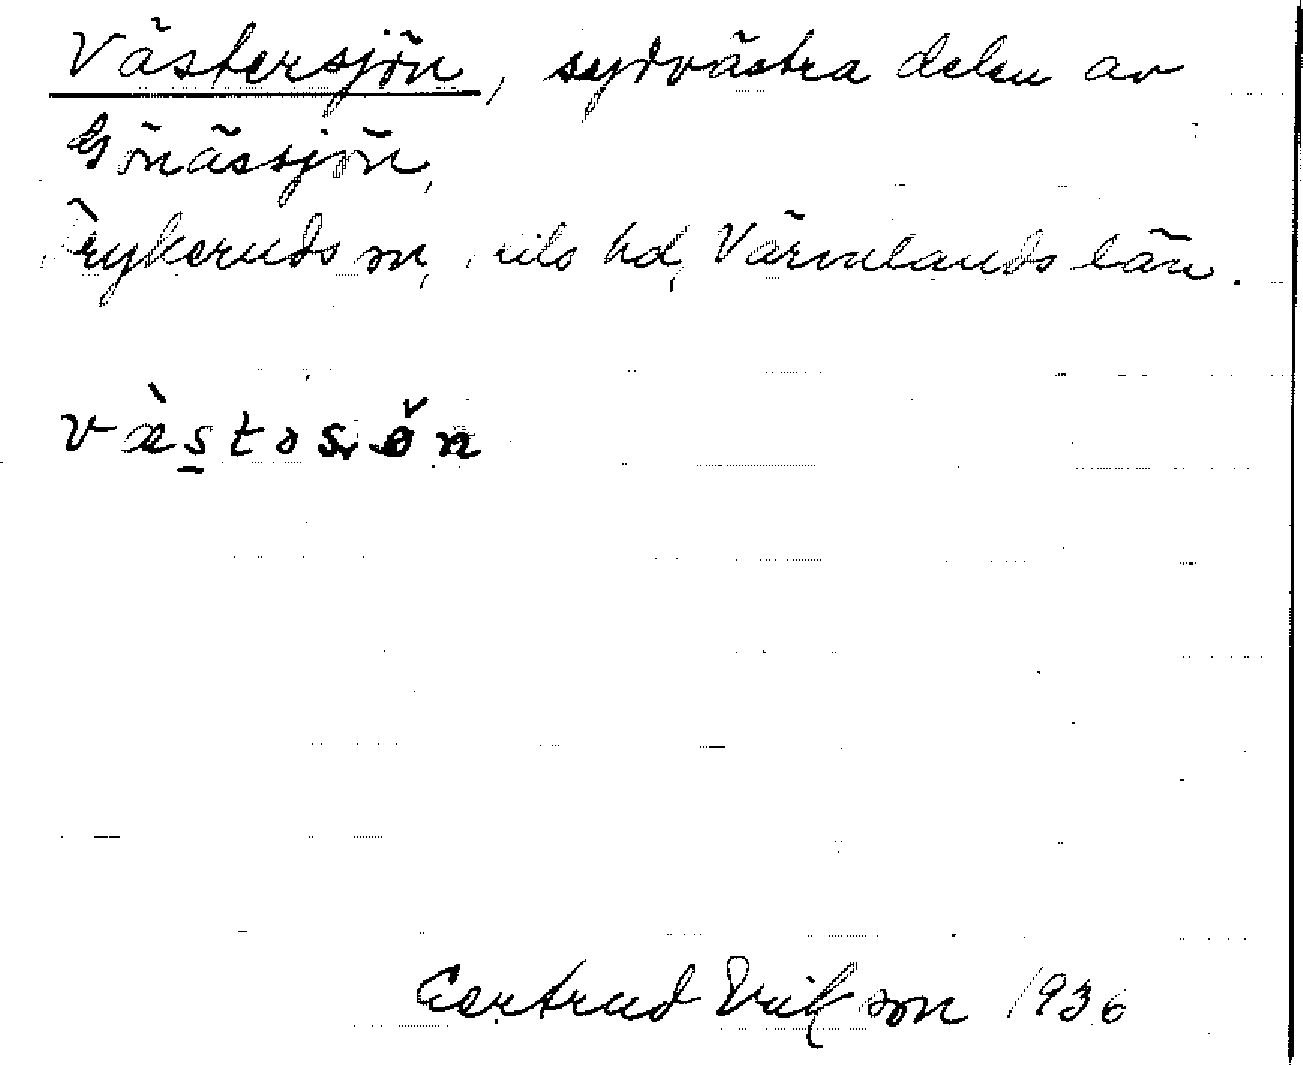 Västersjön, sydvästra delen av
Gönässjön,
Frykeruds sn, Kils hd, Värmlands län.
Gertrud Erikson 1936